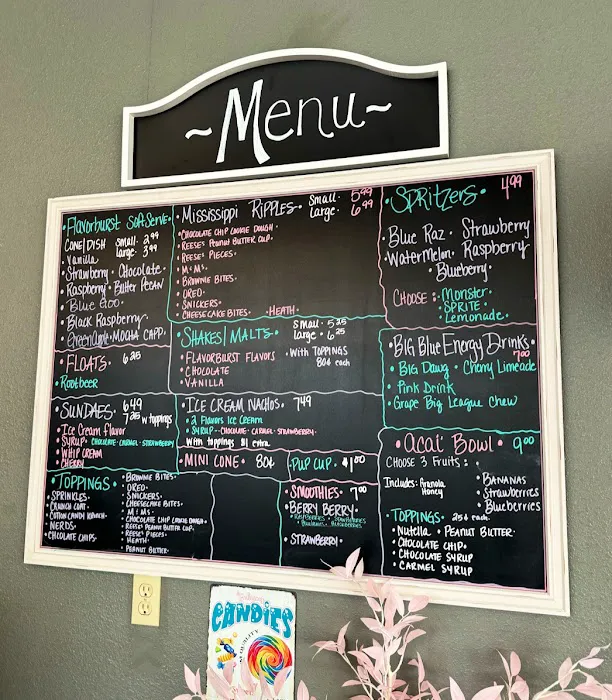 ~Menu~
Flavorburst Soft Serve
Cone/Dish small 2.99
large 3.99
• Vanilla
• Strawberry • Chocolate
• Raspberry • Butter Pecan
• Blue Goo
• Black Raspberry
• Green Apple • Mocha Capp.
• Floats • 6.25
• Rootbeer
• Sundaes • 6.49
7.25 w toppings
• Ice Cream Flavor
• Syrup - Chocolate • Carmel • Strawberry
• Whip Cream
• Cherry
• Toppings •
• Sprinkles •
• Crunch Coat •
• Cotton Candy Krunch
• Nerds •
• Chocolate Chips •
• Brownie Bites •
• Oreo •
• Snickers •
• Cheesecake Bites •
• M&Ms •
• Chocolate Chip Cookie Dough •
• Reese's Peanut Butter Cup •
• Reese's Pieces •
• Heath •
• Peanut Butter
• Mississippi Ripples • Small • 5.99
Large • 6.99
• Chocolate Chip Cookie Dough •
• Reese's Peanut Butter Cup •
• Reese's Pieces •
• M&Ms •
• Brownie Bites •
• Oreo •
• Snickers •
• Cheesecake Bites • • Heath •
• Shakes/Malts • Small • 5.25
large • 6.25
• Flavorburst Flavors
• Chocolate
• Vanilla
• With Toppings
80¢ each
• Ice Cream Nachos • 7.49
• 2 Flavors Ice Cream
• Syrup - Chocolate • Carmel • Strawberry •
With toppings $1 extra
• Mini Cone • 80¢
Pup Cup • $1.00
• Smoothies • 7.00
Berry Berry •
• Raspberries • Strawberries
• Blueberries • Blackberries
Strawberry •
• Spritzers • 4.99
Blue Raz • Strawberry
Watermelon • Raspberry
• Blueberry •
Choose : • Monster •
• Sprite •
• Lemonade •
• Big Blue Energy Drinks •
7.00
• Big Dawg • Cherry Limeade
• Pink Drink
• Grape Big League Chew
• Acai Bowl • 9.00
Choose 3 Fruits :
Includes: Granola
Honey
• Bananas
• Strawberries
• Blueberries
• Toppings • 25¢ each
• Nutella • Peanut Butter •
• Chocolate Chip •
• Chocolate Syrup
• Carmel Syrup
CANDIES
QUALITY